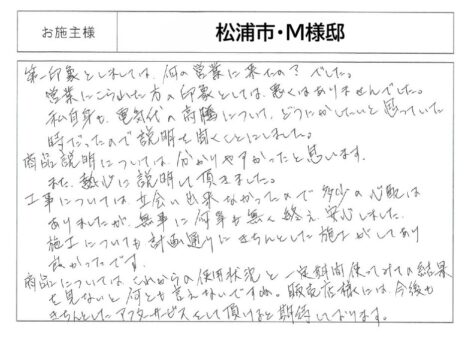 お施主様 松浦市・M様邸
第一印象としましては、何の営業に来たの？でした。
営業にこられた方の印象としては、悪くはありませんでした。
私自身が、電気代の高騰について、どうにかしたいと思っていた
時だったので説明を聞くことにしました。
商品説明については、分かりやすかったと思います。
また、熱心に説明して頂きました。
工事については、立会い出来なかったので多少の心配は
ありましたが、無事に何事も無く終え安心しました。
施工についても計画通りにきちんとした施工がしてあり
良かったです。
商品については、これからの使用状況と一定期間使ってみての結果
を見ないと何とも言えないですね。販売店様には、今後も
きちんとしたアフターサービスをして頂けると期待しております。